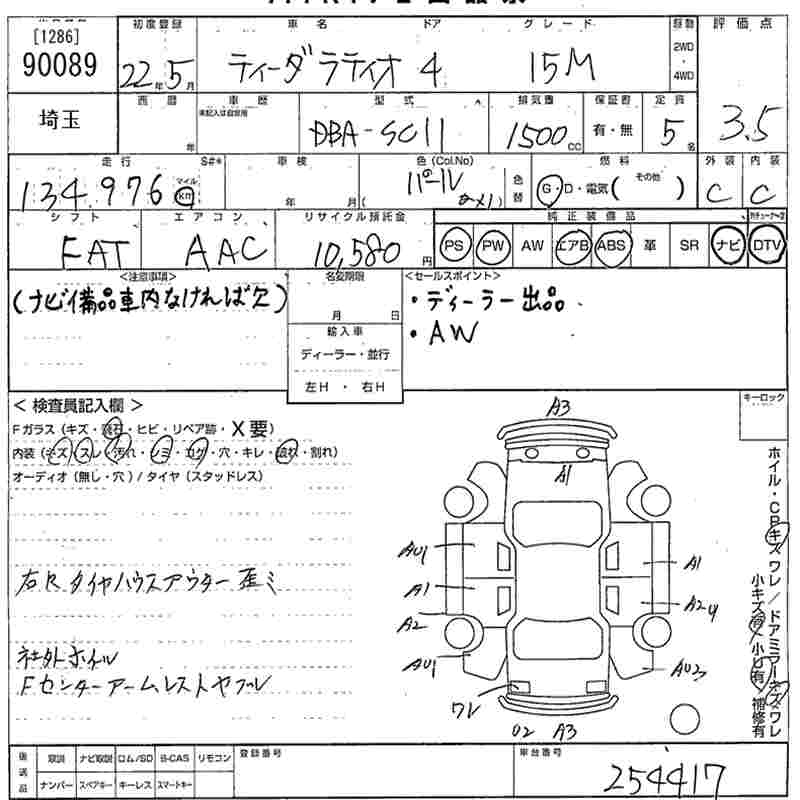 [1286]
90089
初度登録
22年5月
車名 ドア グレード
ティーダラティオ 4 15M
駆動
2WD
4WD
評価点
3.5
埼玉
西暦
年
車歴
未記入は自家用
型式
DBA-SC11
排気量
1500CC
保証書
有・無
定員
5名
走行 S#*
134,976 マイル km
車検
年 月
色(Col.No)
パール
(ｶﾒﾉ)
色替
燃料
G・D・電気( その他 )
外装
C
内装
C
シフト
FAT
エアコン
AAC
リサイクル預託金
10,580円
純正装備品
PS PW AW エアB ABS 革 SR ナビ DTV
<注意事項>
(ナビ備品車内なければ欠)
名変期限
月 日
輸入車
ディーラー・並行
左H・右H
<セールスポイント>
・ディーラー出品
・AW
<検査員記入欄>
Fガラス(キズ・飛石・ヒビ・リペア跡・X要)
内装(キズ・スレ・汚れ・シミ・コゲ・穴・キレ・破れ・割れ)
オーディオ(無し・穴)/タイヤ(スタッドレス)
右Rタイヤハウスアウター歪ミ
社外ホイル
Fセンターアームレストヤブレ
キーロック
A3
A1
AU1
A1
A1
A2
A2
AU1
AU3
ワレ
U2 A3
ホイル・CPキズワレ/ドアミラーキズワレ
小キズ有/小U有/補修有
後送品
取説 ナビ取説 ロム/SD B-CAS リモコン
ナンバー スペアキー キーレス スマートキー
登録番号
車台番号
254417